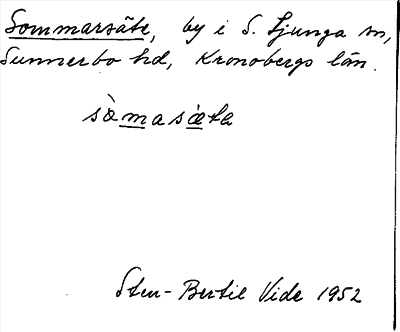 Sommarsäte, by i S. Ljunga sn,
Sunnerbo hd, Kronobergs län.
sàmasæ̀ta
Sten-Bertil Vide 1952